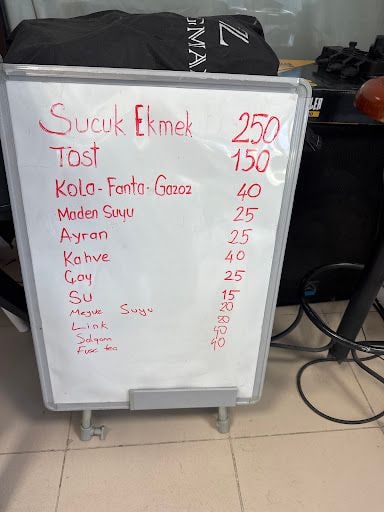 Z
EMA
Sucuk Ekmek 250
Tost 150
Kola-Fanta-Gazoz 40
Maden Suyu 25
Ayran 25
Kahve 40
Çay 25
Su 15
Meyve Suyu 20
Link 20
Şalgam 40
Fuse tea 40